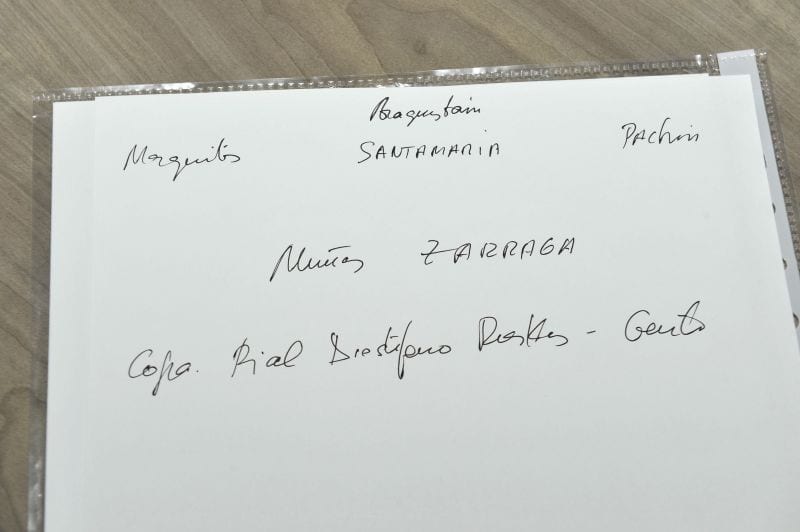 Araquistain
Marquitos SANTAMARIA PAchin
Muñoz ZARRAGA
Copa. Rial Diestefano Puskas - Gento